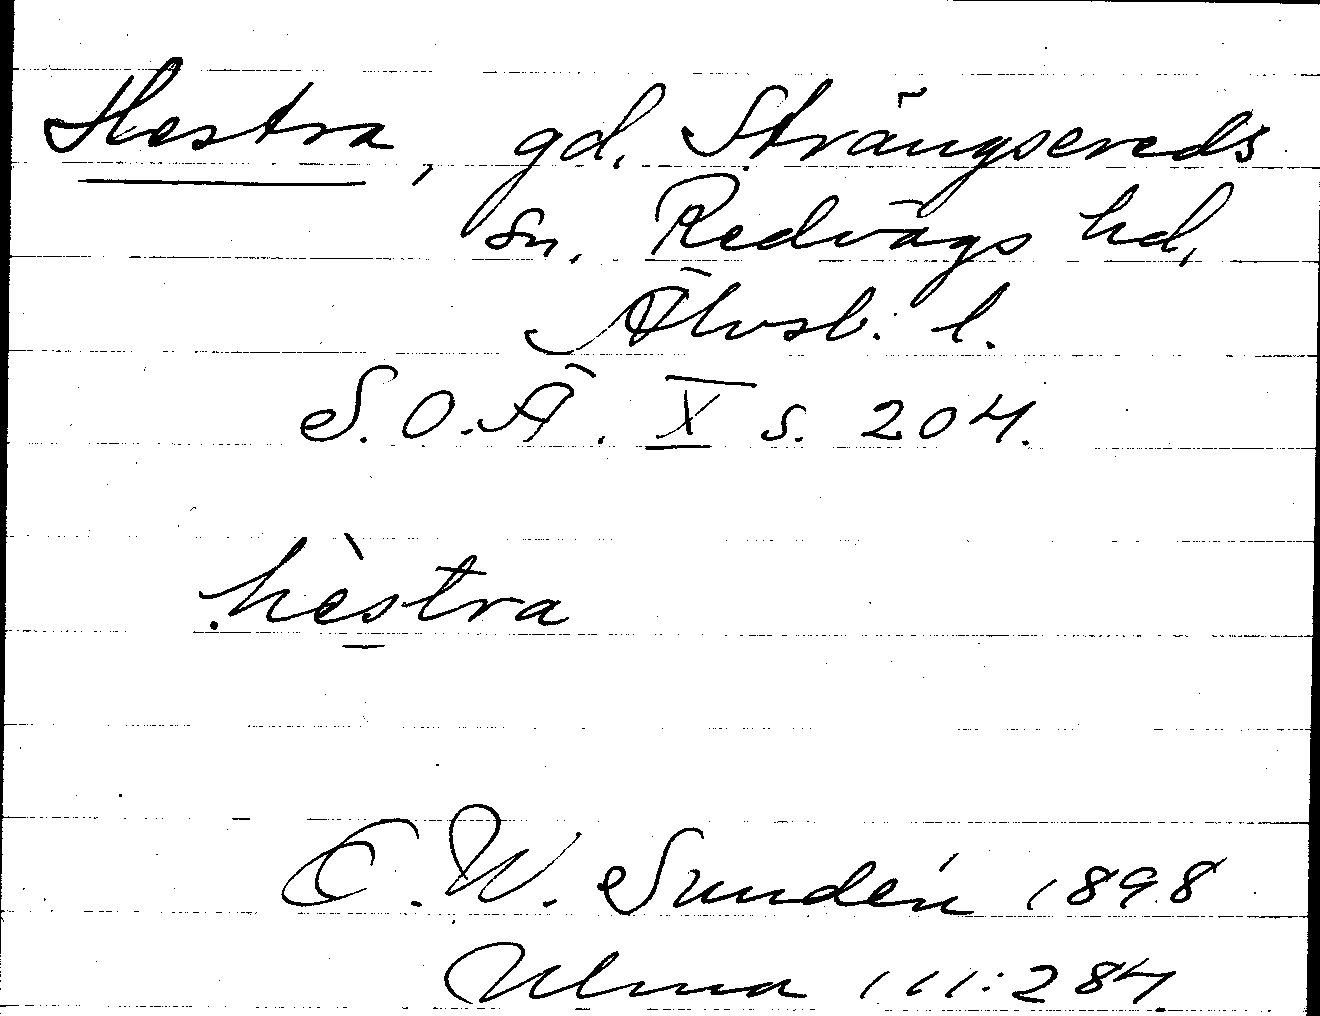 Hestra, gd, Strängsereds
sn. Redvägs hd,
Älvsb. l.
S.O.Ä. X s. 204.
hèstra
C.W. Sundén 1898
Ulma 111:284